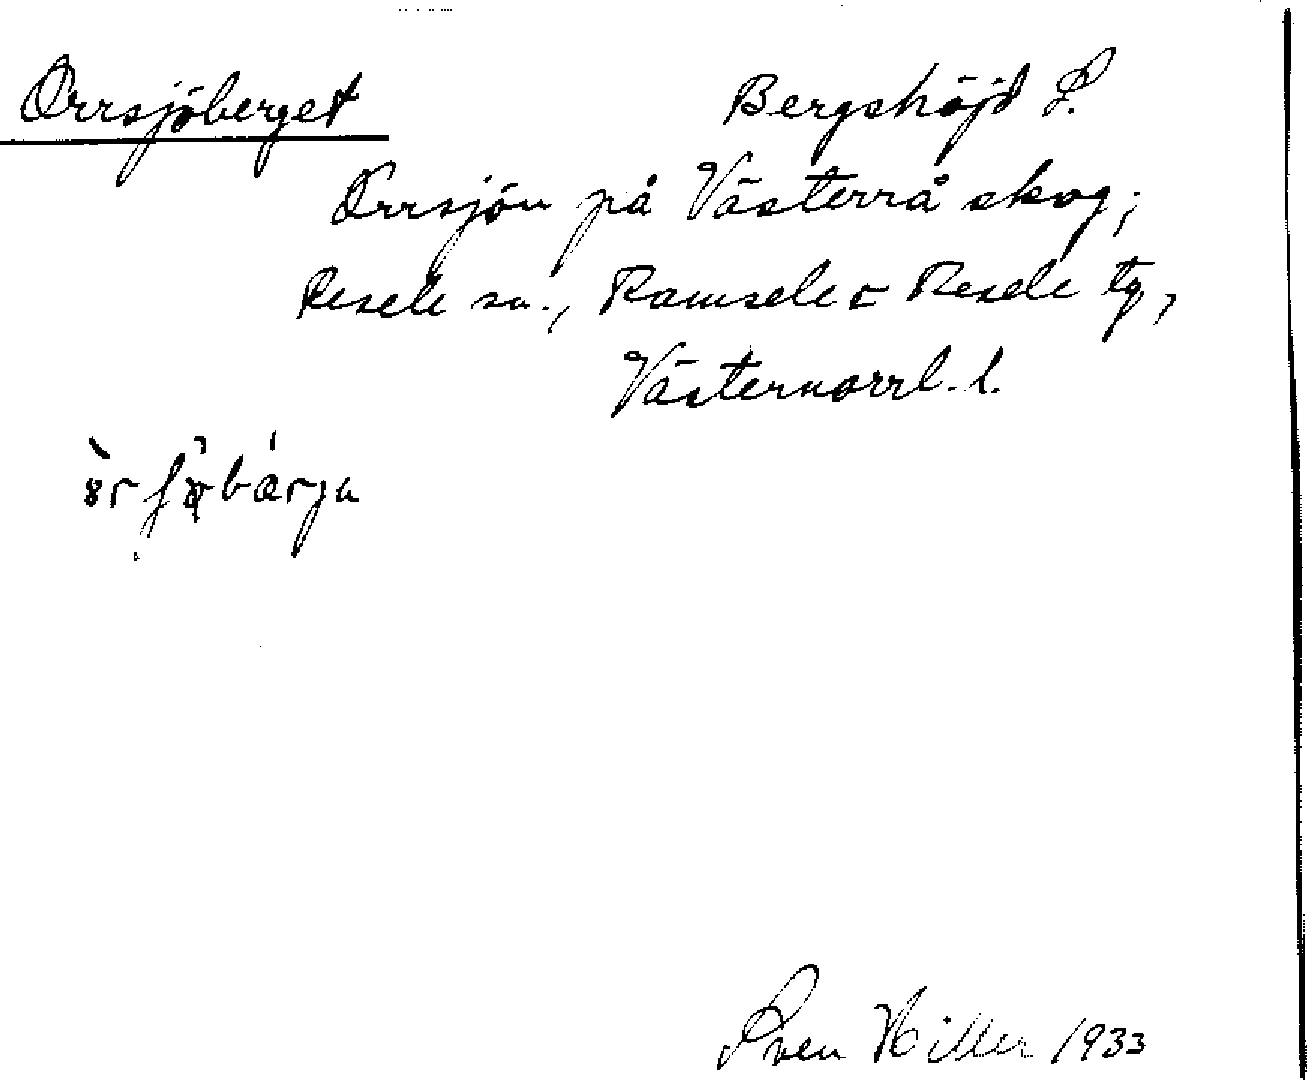 Orrsjöberget Bergshöjd S.
Orrsjön på Västerrå skog,
Resele sn., Ramsele o Resele tg,
Västernorrl. l.
Sven Hiller 1933